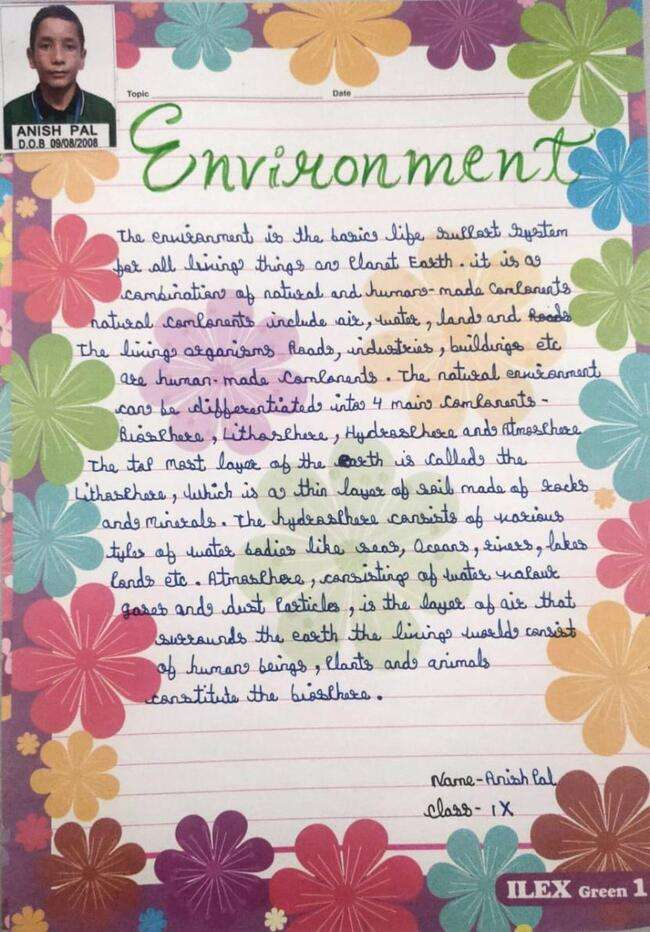 ANISH PAL
D.O.B 09/08/2008
Topic Date
Environment
The environment is the basic life support system
for all living things on Planet Earth. it is a
combination of natural and human-made Components
natural components include air, water, land and Roads
The living organisms Roads, industries, buildings etc
are human-made Components. The natural environment
can be differentiated into 4 main Components-
Biosphere, Lithosphere, Hydrosphere and Atmosphere
The top most layer of the earth is called the
Lithosphere, which is a thin layer of soil made of rocks
and Minerals. The hydrosphere consists of various
types of water bodies like seas, Oceans, rivers, lakes
Ponds etc. Atmosphere, consisting of water vapour
gases and dust Particles, is the layer of air that
surrounds the earth the living world consist
of human beings, Plants and animals
constitute the biosphere.
Name-Anish Pal
Class- IX
ILEX Green 1